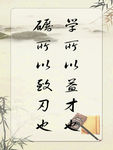 学所以益才也
砺所以致刃也